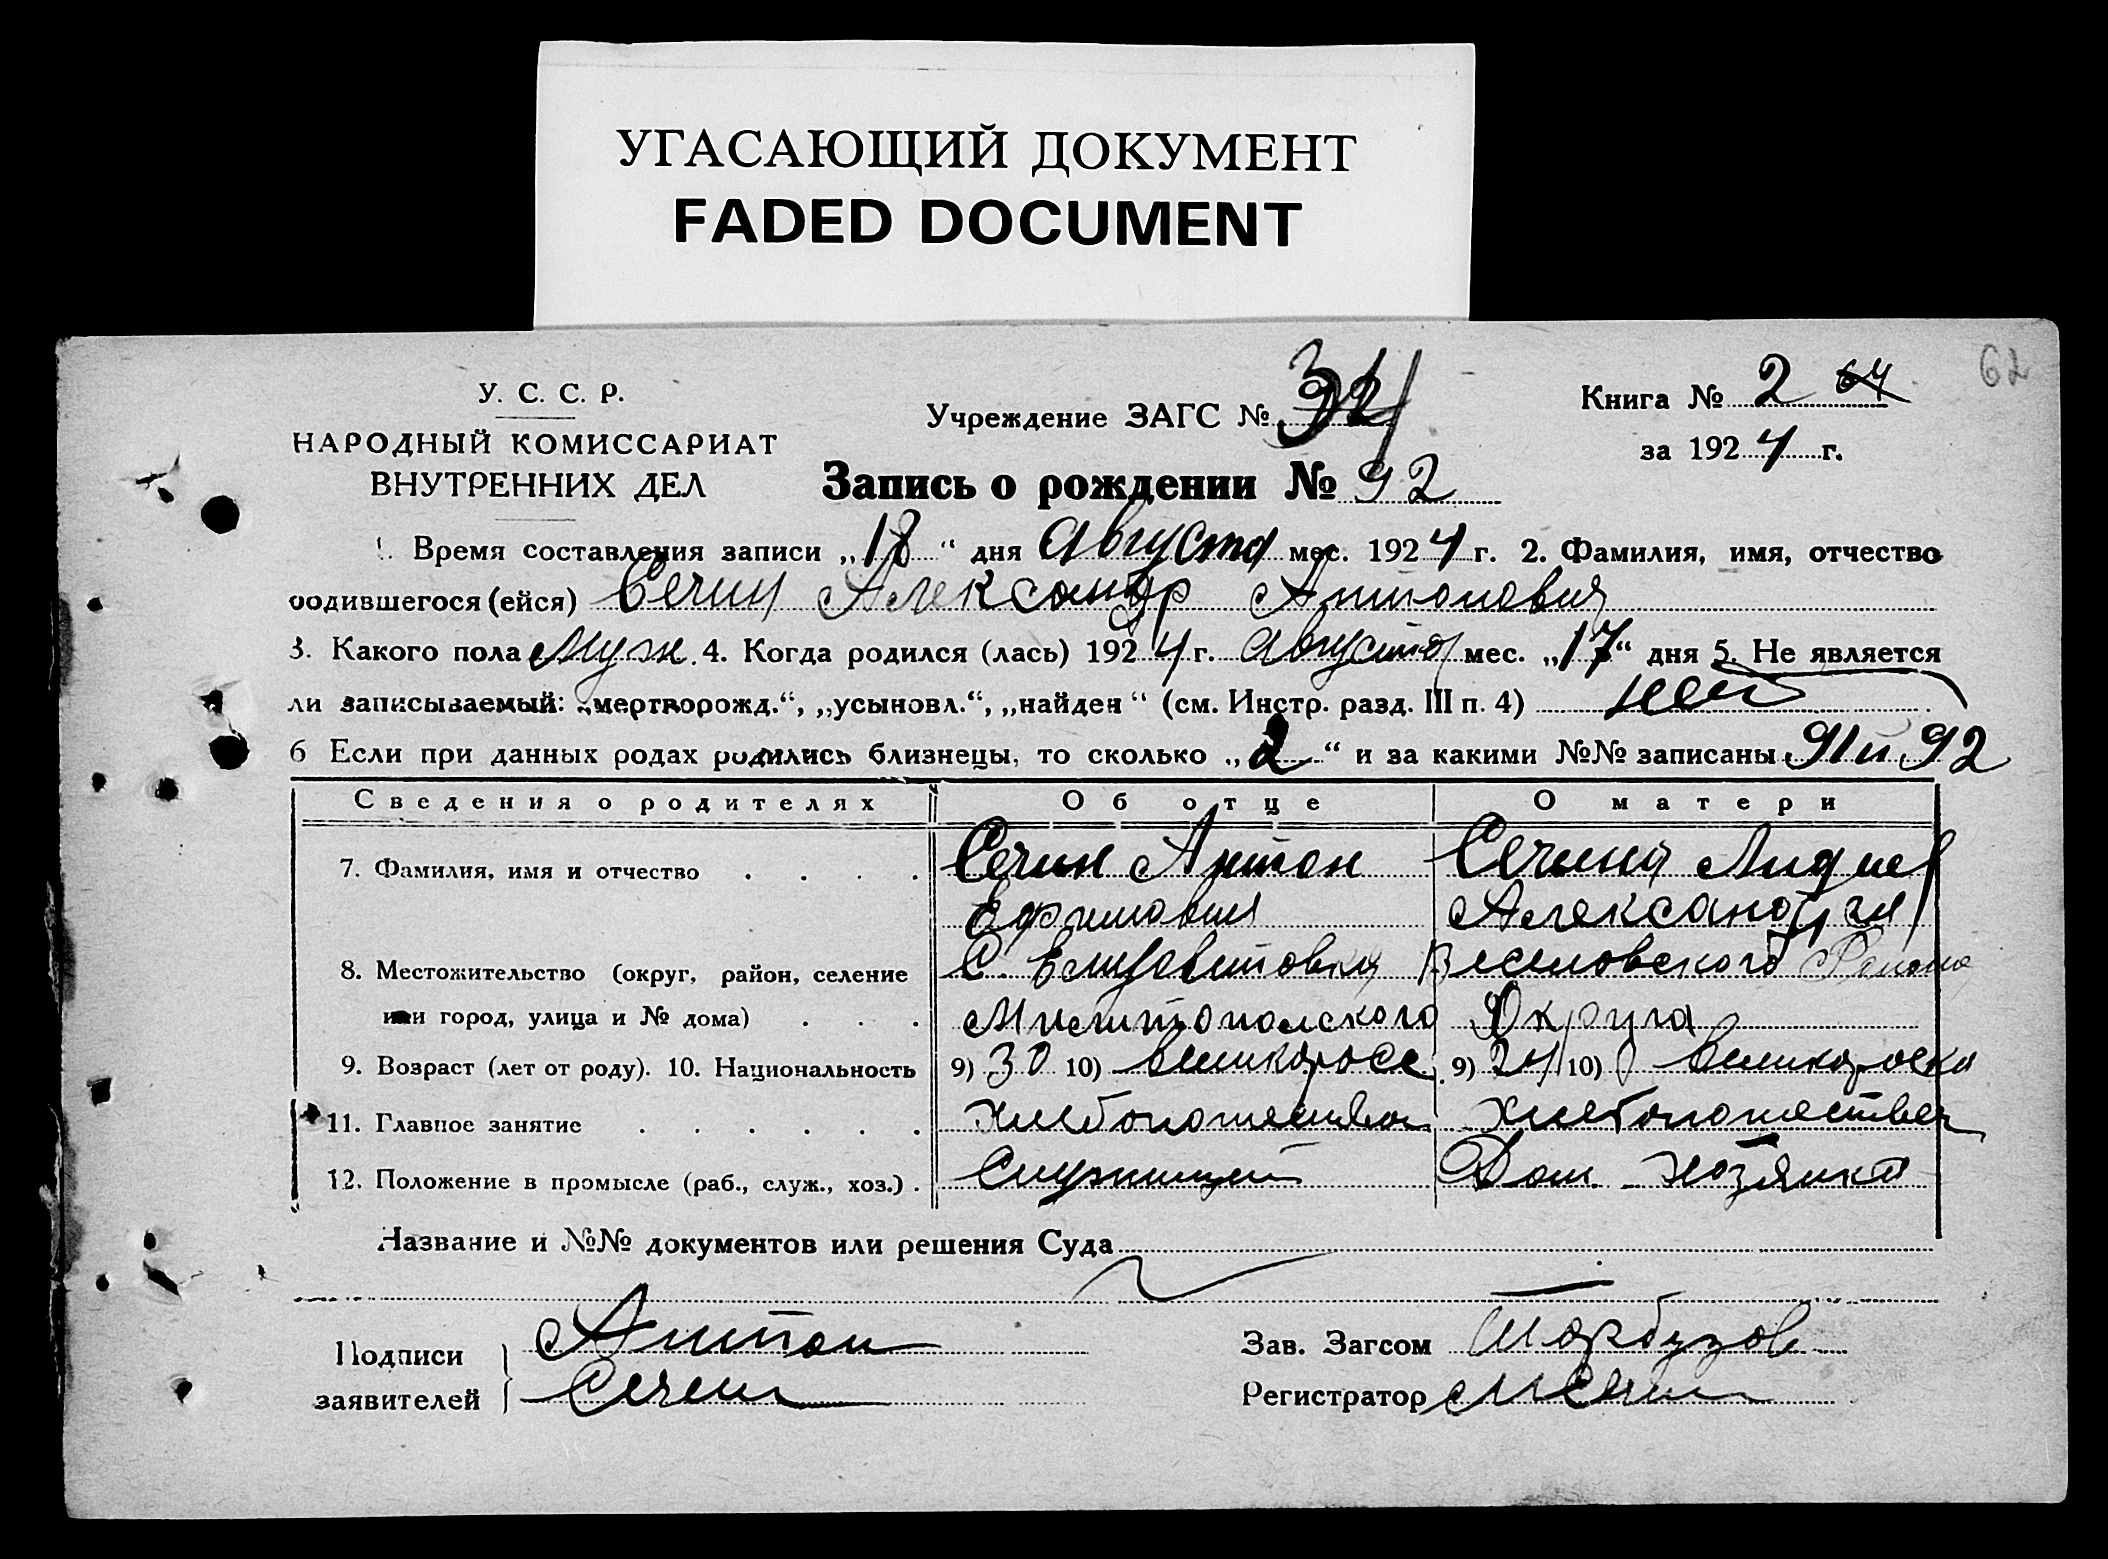 УГАСАЮЩИЙ ДОКУМЕНТ
FADED DOCUMENT
62
У. С. С. Р.
НАРОДНЫЙ КОМИССАРИАТ
ВНУТРЕННИХ ДЕЛ
Учреждение ЗАГС №
Книга № 2 64
за 1924 г.
Запись о рождении № 92
1. Время составления записи „18“ дня Августа мес. 1924 г. 2. Фамилия, имя, отчество
родившегося (ейся) Сечин Александр Антонович
3. Какого пола Муж. 4. Когда родился (лась) 1924 г. Августа мес. „17“ дня 5. Не является
ли записываемый: „мертворожд.“, „усыновл.“, „найден“ (см. Инстр. разд. III п. 4) нет
6 Если при данных родах родились близнецы, то сколько „2“ и за какими №№ записаны 91 и 92
Сведения о родителях Об отце О матери
7. Фамилия, имя и отчество Сечин Антон Сечина Лидия
Ефимович Александр
8. Местожительство (округ, район, селение С. Елизаветовка Веселовского Района
или город, улица и № дома) Мелитопольского Округа
9. Возраст (лет от роду). 10. Национальность 9) 30 10) великоросс 9) 24 10) великороска
11. Главное занятие Хлебопашество Хлебопашество
12. Положение в промысле (раб., служ., хоз.) Служащий Дом. хозяйка
Название и №№ документов или решения Суда
Подписи заявителей Антон
Сечин
Зав. Загсом
Регистратор